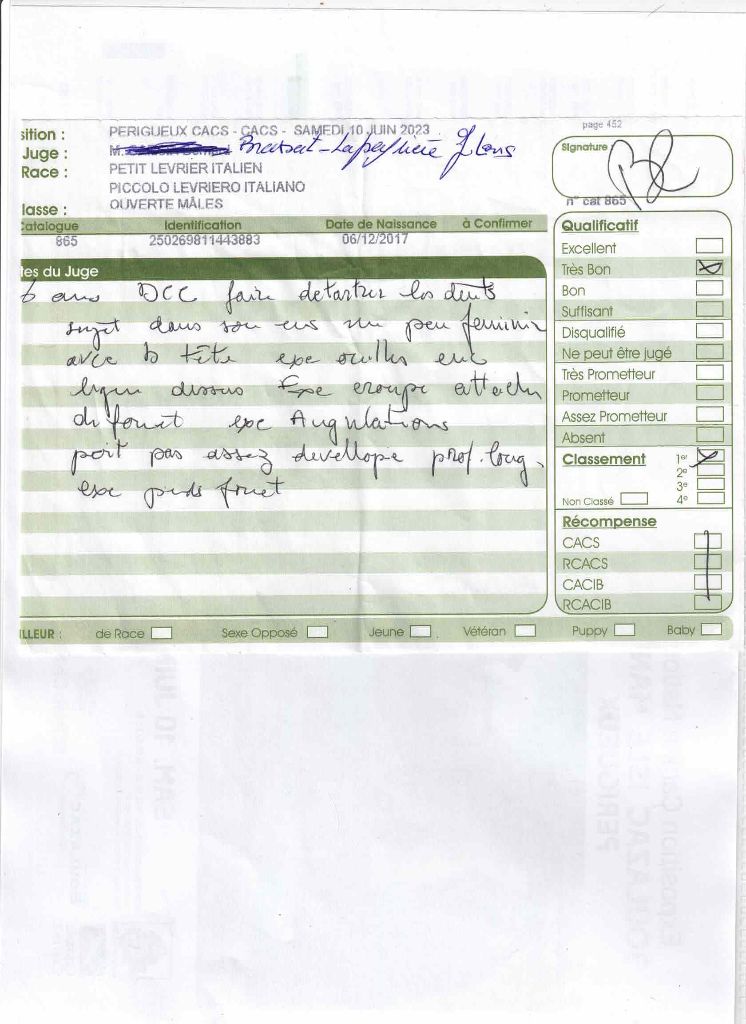 page 452
sition : PERIGUEUX CACS - CACS - SAMEDI 10 JUIN 2023
Juge : M.
Race : PETIT LEVRIER ITALIEN
PICCOLO LEVRIERO ITALIANO
lasse : OUVERTE MÂLES
Signature
n° cat 865
Catalogue Identification Date de Naissance à Confirmer
865 250269811443883 06/12/2017
tes du Juge
6 ans DCC faire detartrer les dents
sujet dans son ens un peu feminin
avec la tête exc oreilles en
ligne dessus Exc croupe attache
du fouet exc Angulations
poit pas assez develloppe prof. long.
exc pieds fouet
Qualificatif
Excellent
Très Bon
Bon
Suffisant
Disqualifié
Ne peut être jugé
Très Prometteur
Prometteur
Assez Prometteur
Absent
Classement 1er
2e
3e
Non Classé 4e
Récompense
CACS
RCACS
CACIB
RCACIB
ILLEUR : de Race Sexe Opposé Jeune Vétéran Puppy Baby
PERIGUEUX
SAM. 10 JUIN